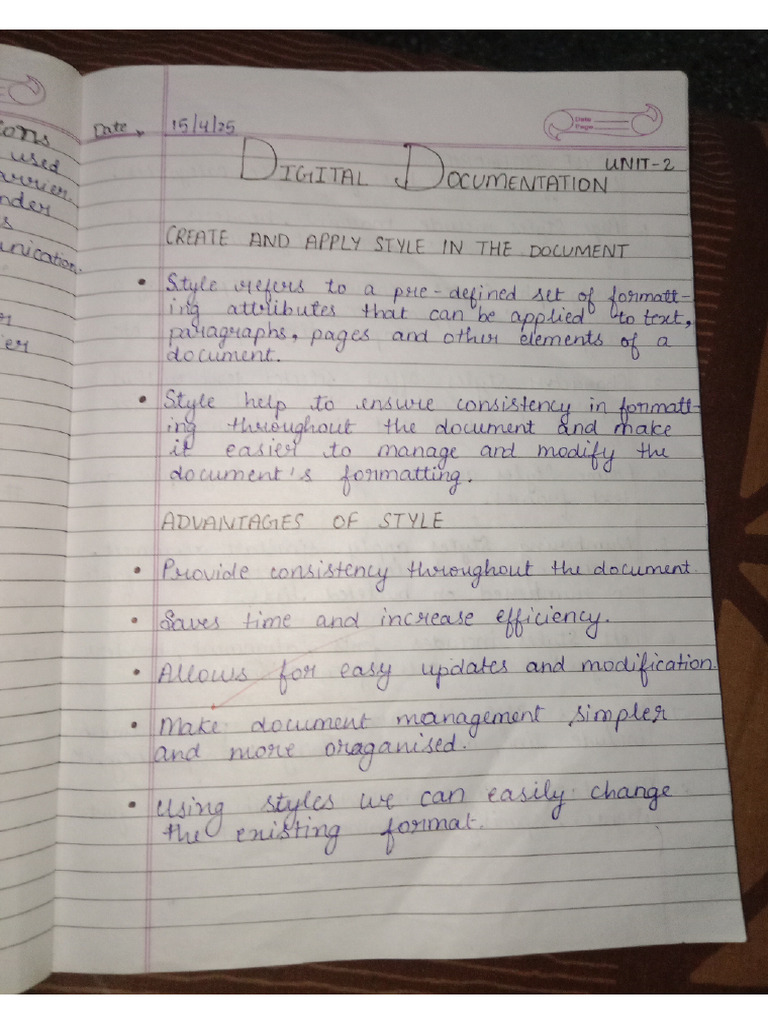 ons
used
arrier.
nder
s
unication.
er
Date
15/4/25
Date
Page
UNIT-2
DIGITAL DOCUMENTATION
CREATE AND APPLY STYLE IN THE DOCUMENT
• Style refers to a pre-defined set of formatt-
ing attributes that can be applied to text,
paragraphs, pages and other elements of a
document.
• Style help to ensure consistency in formatt-
ing throughout the document and make
it easier to manage and modify the
document's formatting.
ADVANTAGES OF STYLE
• Provide consistency throughout the document.
• Saves time and increase efficiency.
• Allows for easy updates and modification.
• Make document management simpler
and more oraganised.
• Using styles we can easily change
the existing format.